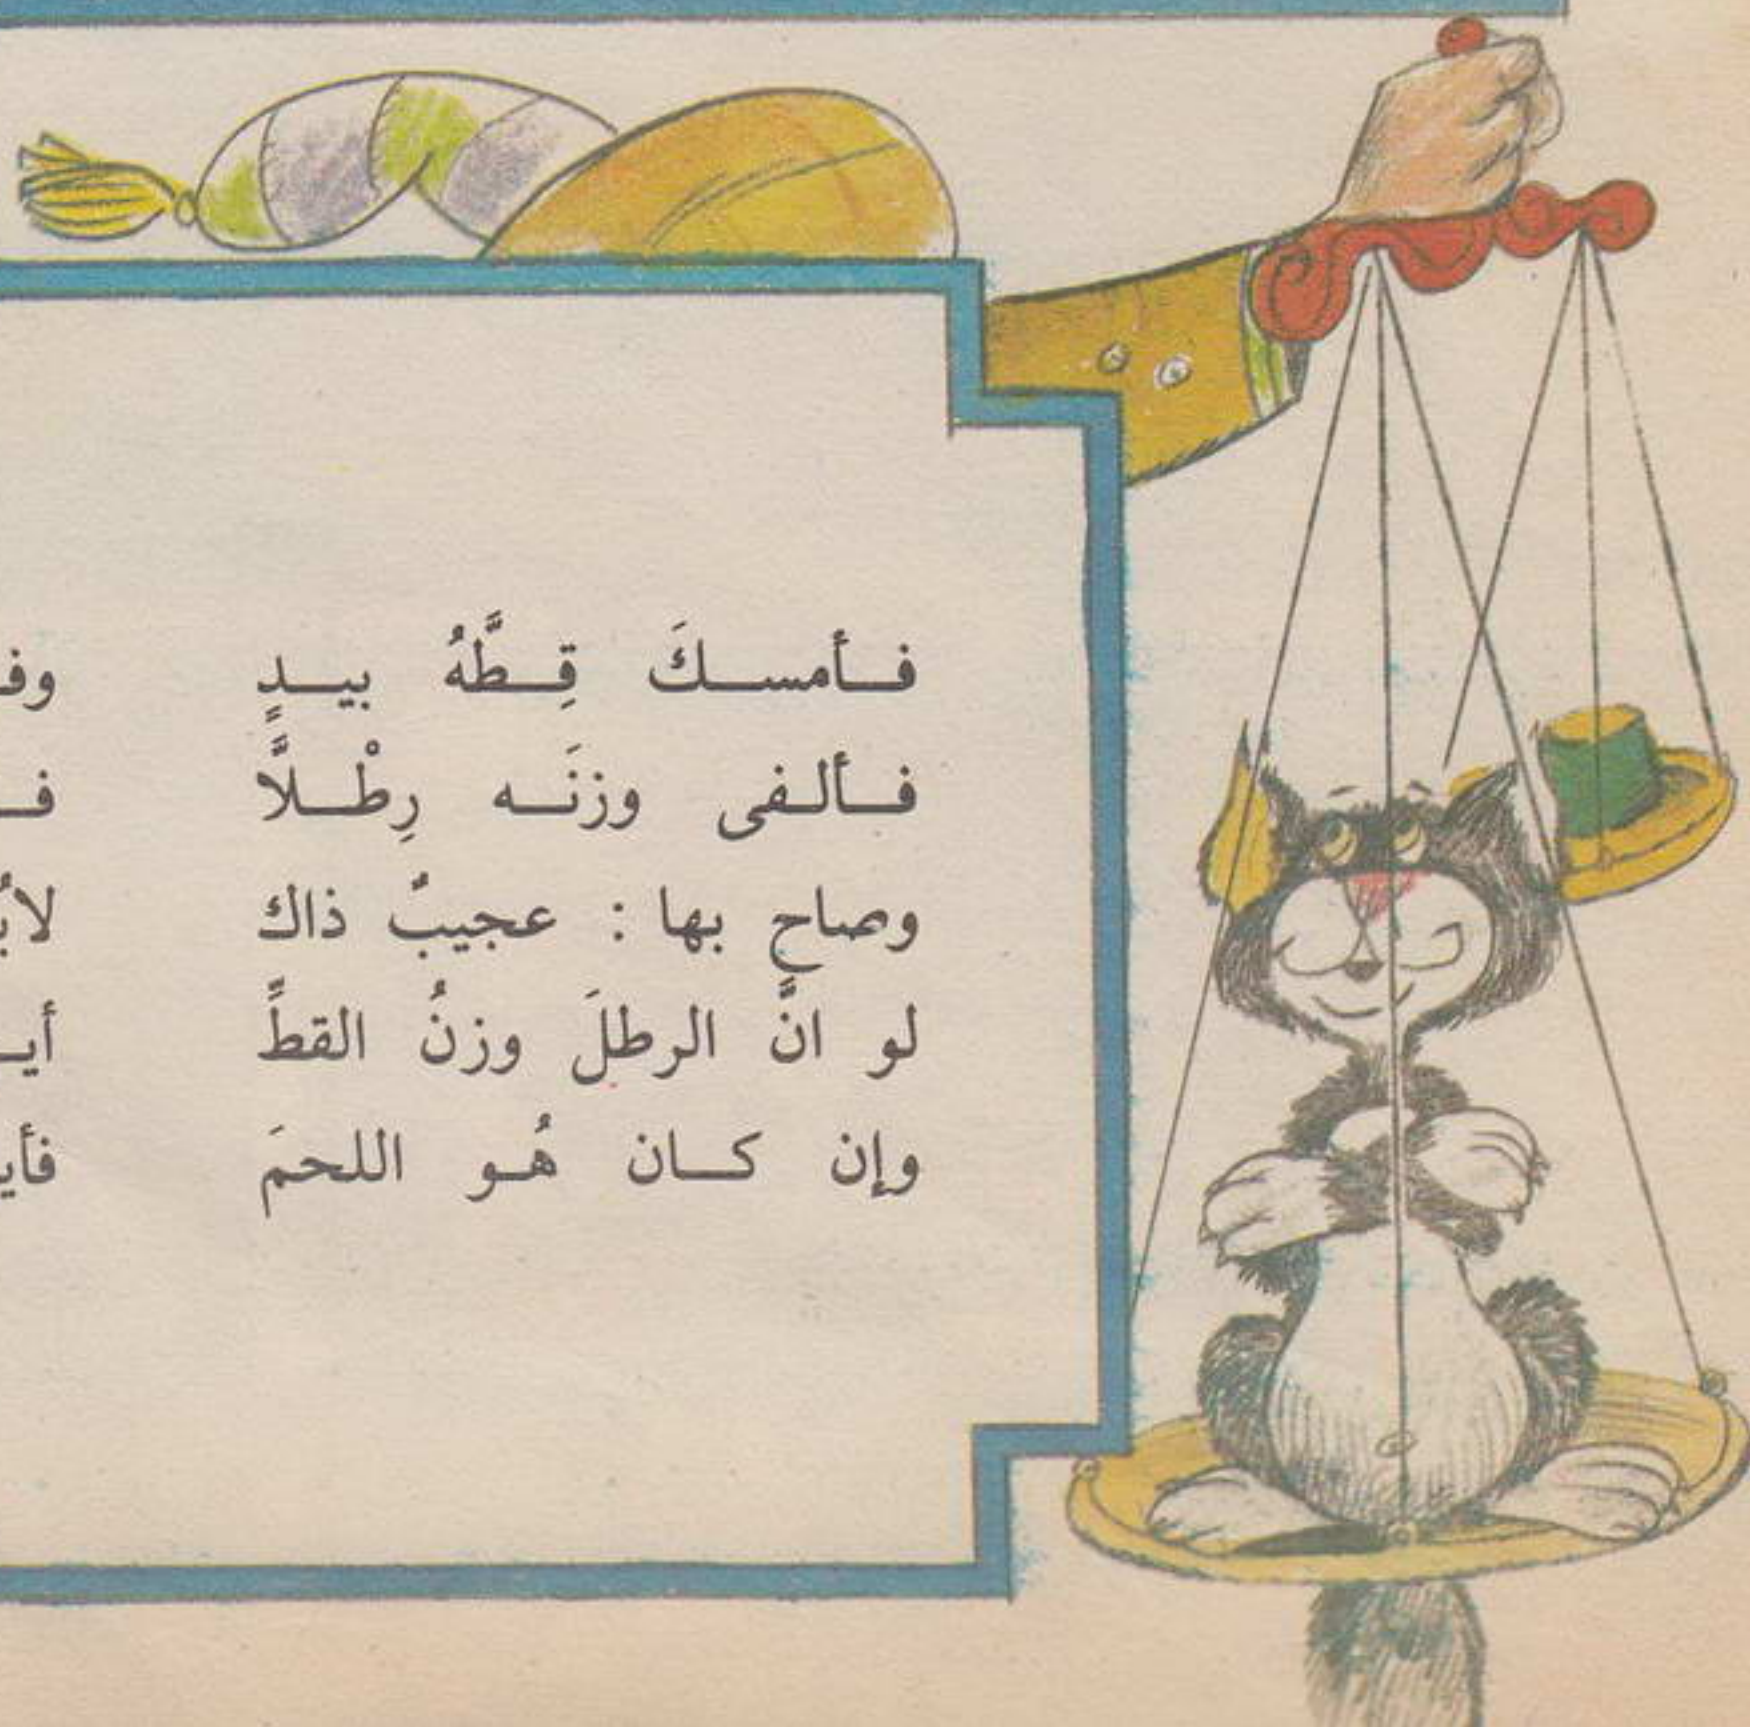 فأمسكَ قِطَّهُ بيدٍ
فألفى وزنَه رِطْلاًّ
وصاح بها : عجيبٌ ذاك
لو انَّ الرطلَ وزنُ القطِّ
وإن كان هُو اللحمَ